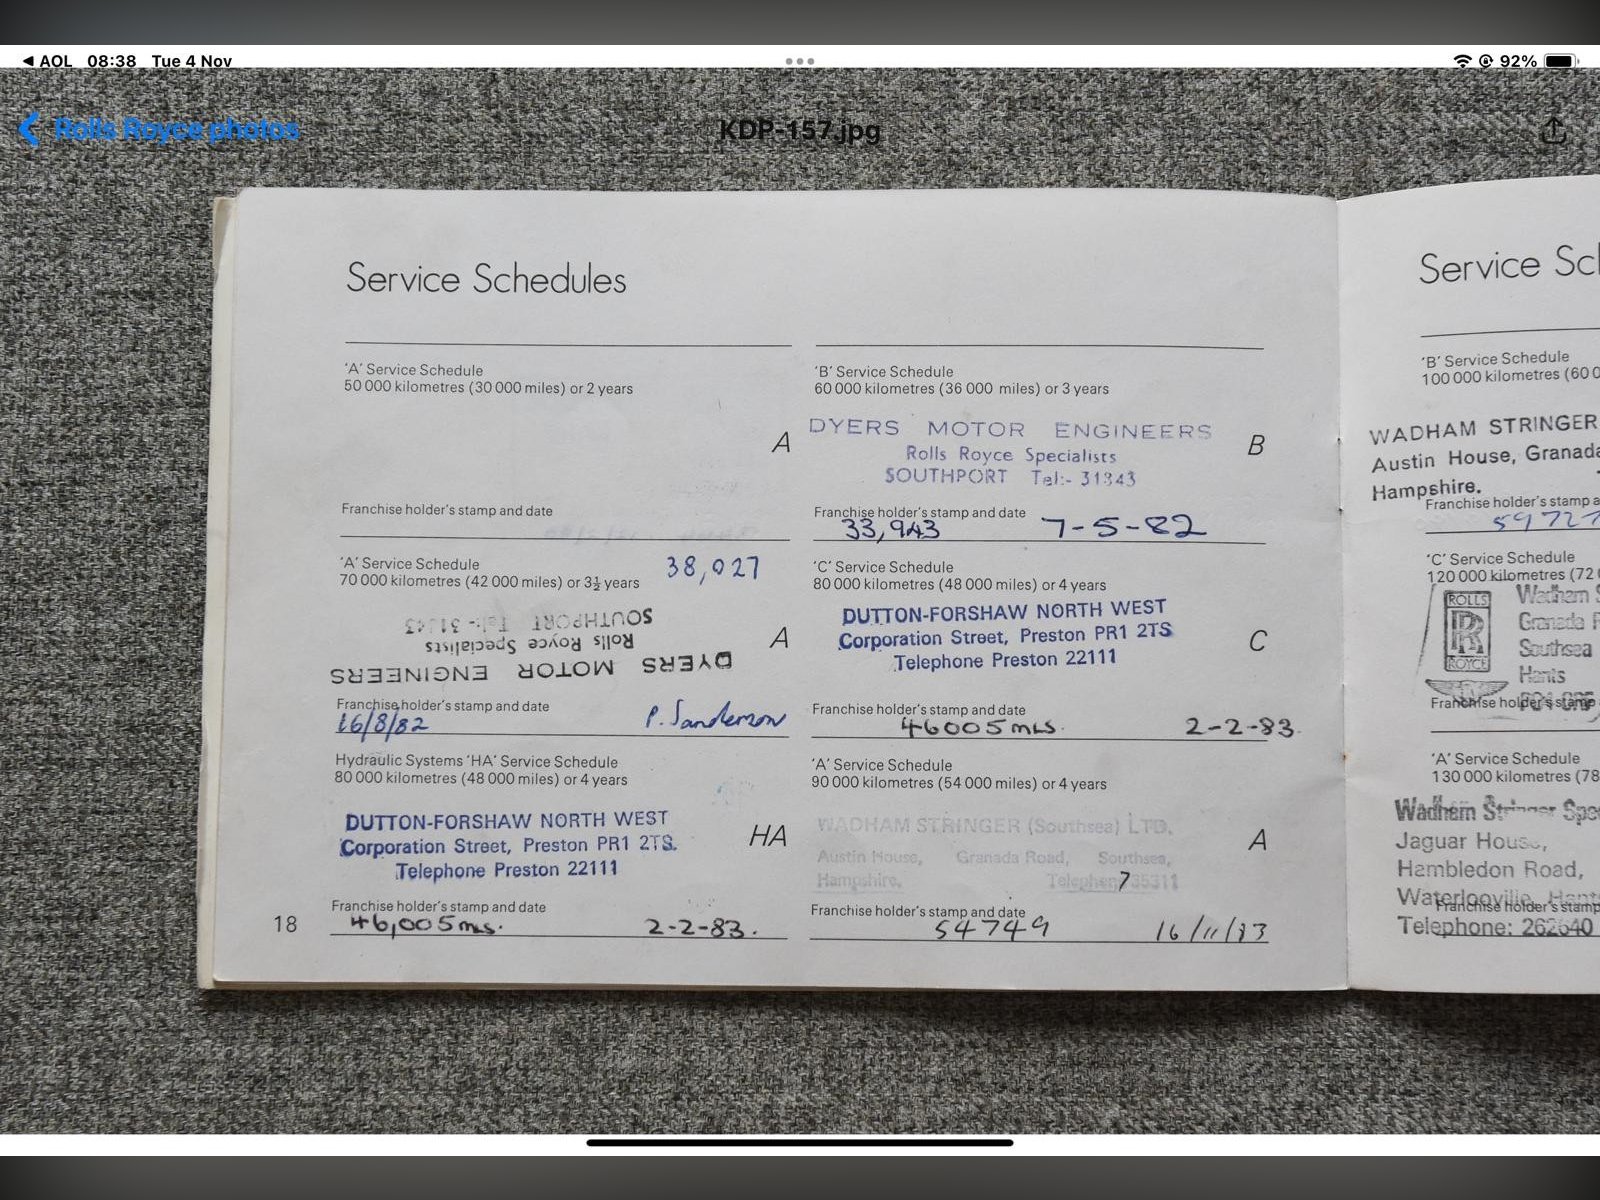 AOL 08:38 Tue 4 Nov
92%
Rolls Royce photos
KDP-157.jpg
Service Schedules
'A' Service Schedule
50 000 kilometres (30 000 miles) or 2 years
A
Franchise holder's stamp and date
'B' Service Schedule
60 000 kilometres (36 000 miles) or 3 years
DYERS MOTOR ENGINEERS
Rolls Royce Specialists
SOUTHPORT Tel:- 31343
B
Franchise holder's stamp and date
33,943 7-5-82
'A' Service Schedule
70 000 kilometres (42 000 miles) or 3½ years
38,027
DYERS MOTOR ENGINEERS
Rolls Royce Specialists
SOUTHPORT Tel:- 31343
A
Franchise holder's stamp and date
16/8/82 P. Sanderson
'C' Service Schedule
80 000 kilometres (48 000 miles) or 4 years
DUTTON-FORSHAW NORTH WEST
Corporation Street, Preston PR1 2TS
Telephone Preston 22111
C
Franchise holder's stamp and date
46005 mls. 2-2-83.
Hydraulic Systems 'HA' Service Schedule
80 000 kilometres (48 000 miles) or 4 years
DUTTON-FORSHAW NORTH WEST
Corporation Street, Preston PR1 2TS.
Telephone Preston 22111
HA
Franchise holder's stamp and date
46,005 mls. 2-2-83.
'A' Service Schedule
90 000 kilometres (54 000 miles) or 4 years
WADHAM STRINGER (Southsea) LTD.
Austin House, Granada Road, Southsea,
Hampshire. 735311
A
Franchise holder's stamp and date
54749 16/11/83
18
Service Sc
'B' Service Schedule
100 000 kilometres (60 0
WADHAM STRINGER
Austin House, Granada
Hampshire.
Franchise holder's stamp a
59727
'C' Service Schedule
120 000 kilometres (72 0
ROLLS
RR
ROYCE
Wadham S
Granada R
Southsea
Hants
Franchise holder's stamp
'A' Service Schedule
130 000 kilometres (78
Wadham Stringer Spe
Jaguar House,
Hambledon Road,
Waterlooville, Hants
Franchise holder's stamp
Telephone: 262640